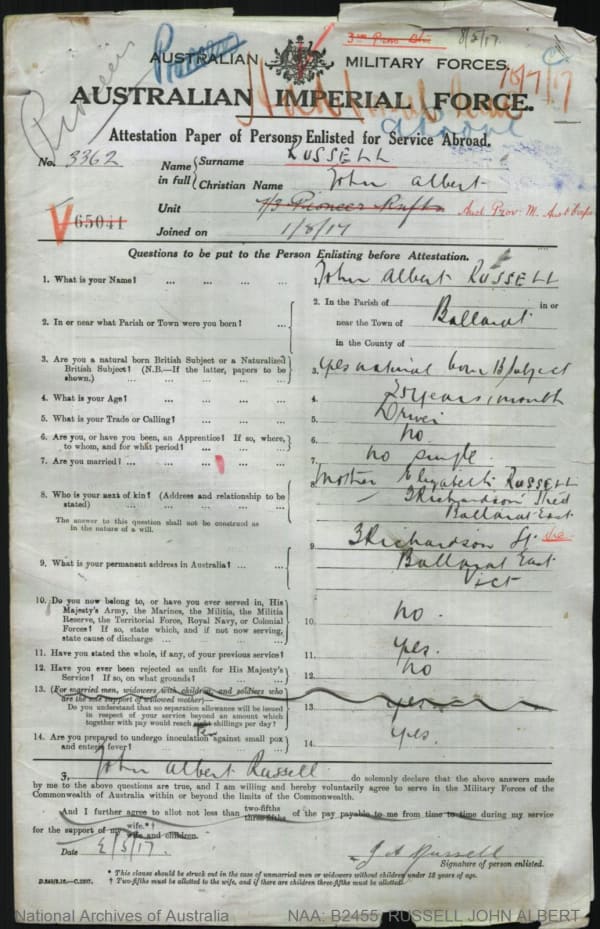 Pioneers
Pioneers
AUSTRALIAN MILITARY FORCES.
AUSTRALIAN IMPERIAL FORCE.
Attestation Paper of Persons Enlisted for Service Abroad.
No. 3362
Name in full { Surname RUSSELL
Christian Name John Albert
Unit 7/3 Pioneer Rnfts
65041
Joined on 1/3/17
Questions to be put to the Person Enlisting before Attestation.
1. What is your Name? ... ... ... ... John Albert RUSSELL
2. In or near what Parish or Town were you born? ... 2. In the Parish of in or
near the Town of Ballarat
in the County of
3. Are you a natural born British Subject or a Naturalized
British Subject? (N.B.—If the latter, papers to be
shown.) ... ... ... ... 3. yes natural born B/Subject
4. What is your Age? ... ... ... ... 4. 25 years 1 month
5. What is your Trade or Calling? ... ... ... 5. Driver
6. Are you, or have you been, an Apprentice? If so, where,
to whom, and for what period? ... ... 6. no.
7. Are you married? ... ... ... ... 7. no single.
8. Who is your next of kin? (Address and relationship to be
stated) ... ... ... ... 8. Mother Elizabeth RUSSELL
3 Richardson Street
Ballarat East
The answer to this question shall not be construed as
in the nature of a will.
9. What is your permanent address in Australia? ... 9. 3 Richardson St. Vic
Ballarat East
Vict
10. Do you now belong to, or have you ever served in, His
Majesty's Army, the Marines, the Militia, the Militia
Reserve, the Territorial Force, Royal Navy, or Colonial
Forces? If so, state which, and if not now serving,
state cause of discharge ... ... ... 10. no.
11. Have you stated the whole, if any, of your previous service? 11. yes.
12. Have you ever been rejected as unfit for His Majesty's
Service? If so, on what grounds? ... ... 12. no
13. (For married men, widowers with children, and soldiers who
are the sole support of widowed mother—
Do you understand that no separation allowance will be issued
in respect of your service beyond an amount which
together with pay would reach eight shillings per day? Ten 13. yes
14. Are you prepared to undergo inoculation against small pox
and enteric fever? ... ... ... ... 14. yes.
I, John Albert Russell do solemnly declare that the above answers made
by me to the above questions are true, and I am willing and hereby voluntarily agree to serve in the Military Forces of the
Commonwealth of Australia within or beyond the limits of the Commonwealth.
And I further agree to allot not less than two-fifths three-fifths of the pay payable to me from time to time during my service
for the support of my wife.*† wife and children.
Date 2/3/17. J A Russell
Signature of person enlisted.
* This clause should be struck out in the case of unmarried men or widowers without children under 18 years of age.
† Two-fifths must be allotted to the wife, and if there are children three-fifths must be allotted.
National Archives of Australia NAA: B2455, RUSSELL JOHN ALBERT